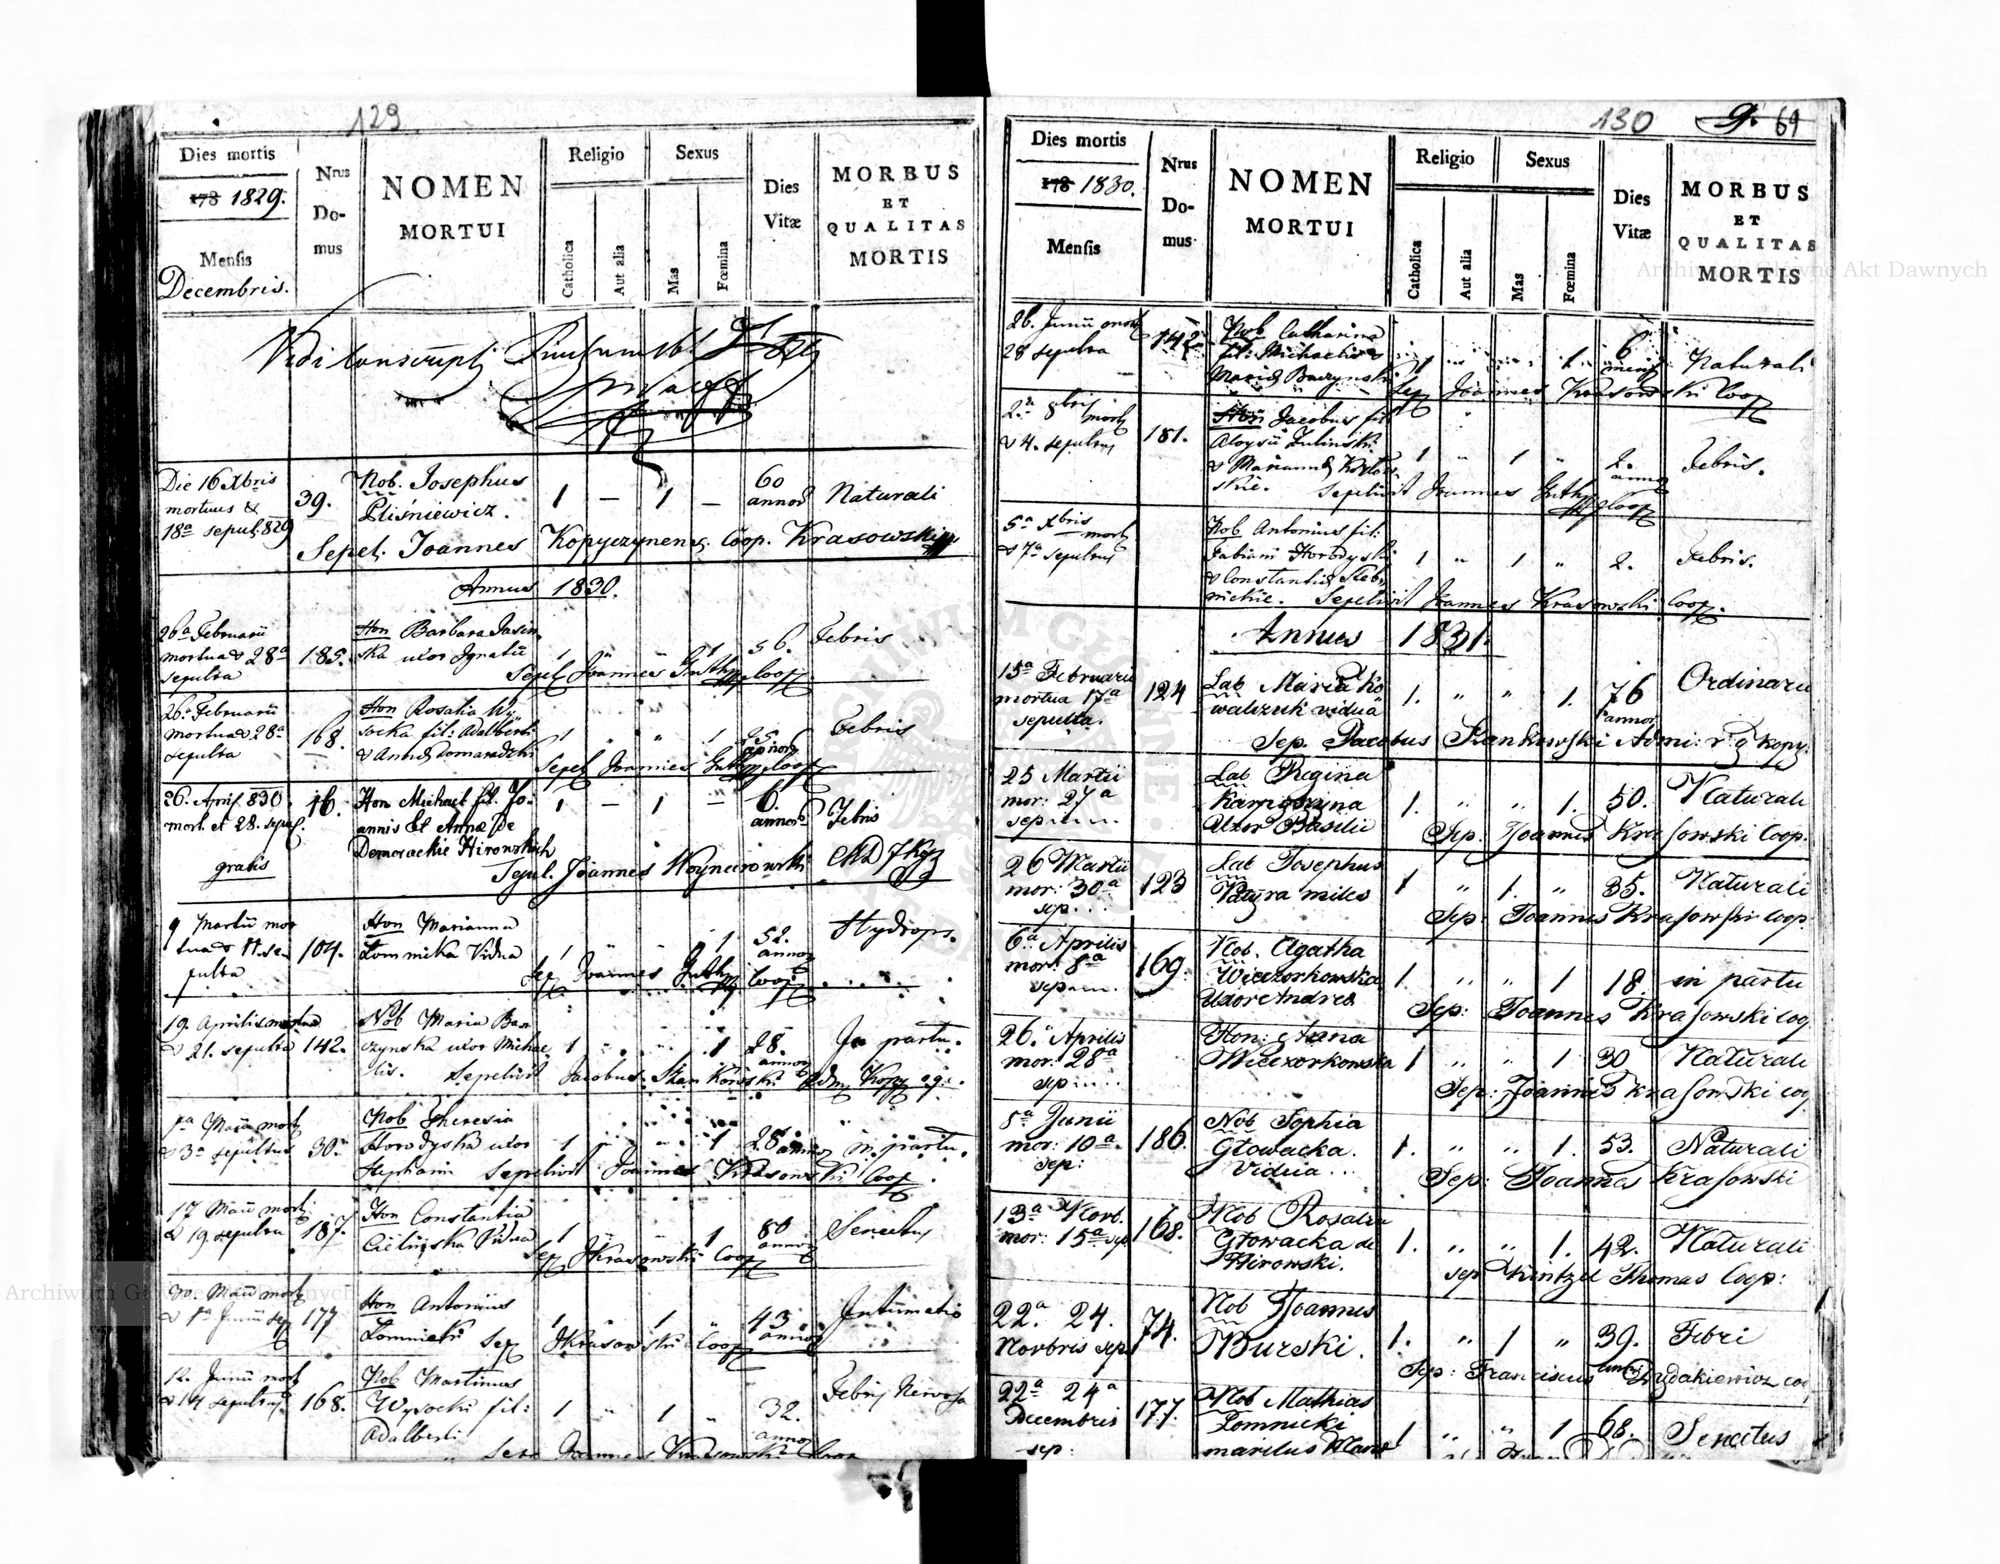 129
Dies mortis
173 1829.
Mensis
Decembris.
Nrus
Do-
mus
NOMEN
MORTUI
Religio
Catholica
Aut alia
Sexus
Mas
Fœmina
Dies
Vitæ
MORBUS
ET
QUALITAS
MORTIS
Vidi
Die 16 Xbris
mortuus &
18a sepul: 829
39.
Nob. Josephus
Pliśniewicz.
1 — 1 —
60
annor
Naturali
Sepel. Joannes Kopyczynens. Coop. Krasowski
Annus 1830.
26a Februarii
mortua & 28a
sepulta
185.
Hon Barbara Jasin
ska uxor Ignatii
1 " " 1
56.
Febris
Sepel Joannes Coop
26a Februarii
mortua & 28a
sepulta
168.
Hon Rosalia Wy
socka fil: Adalberti
& Domaradzki
1 " " 1
annor
Febris
Sepel Joannes Coop
26. April 830
mort. et 28. sepul.
gratis
16.
Hon Michael fil. Jo-
annis et Annæ de
Domorackie Hirowskich
1 — 1 —
6.
annor
Febris
Sepul. Joannes
9 Martii mor
tua & 11. se
pulta
104.
Hon Marianna
Łomnicka Vidua
1 " " 1
52.
annor
Hydrops.
Sep Joannes Coop
19. Aprilis mortua
& 21. sepulta
142.
Nob Maria Ba
czynska uxor Michae
lis.
1 " " 1
28.
annor
In partu.
Sepelivit Jacobus Stankowski Adm
1a Maii mort
& 3a sepultus
30.
Nob Theresia
Horodyska uxor
Stephani
1 " " 1
28
annor
in partu.
Sepelivit Joannes Krasowski Coop
17 Maii mort.
& 19. sepulta
187.
Hon Constantia
Vidua
1 " " 1
80
annor
Senectus
Sep JKrasowski Coop
30. Maii mort
& 1a Junii sep
177
Hon Antonius
Łomnicki
1 " 1 "
43
annor
Sep JKrasowski Coop
12. Junii mort
& 14 sepultus
168.
Nob Martinus
Wysocki fil:
Adalberti
1 " 1 "
32.
annor
Febris Nervosa
Joannes Krasowski Coop
130 9. 69
Dies mortis
178 1830.
Mensis
Nrus
Do-
mus
NOMEN
MORTUI
Religio
Catholica
Aut alia
Sexus
Mas
Fœmina
Dies
Vitæ
MORBUS
ET
QUALITAS
MORTIS
26. Junii mort
28 sepulta
142
Nob Catharina
fil: Michaelis &
Maria Baczynski
1 " " 1
6
mens
Naturali
Sep Joannes Krasowski Coop
2a 8bris mort
& 4. sepultus
181.
Hon Jacobus fil:
Aloysii Zulinski
& Marianna
skie.
1 " 1 "
2.
annor
Febris.
Sepelivit Joannes Coop
5a Xbris
mort
& 7a sepultus
Nob Antonius fil:
Fabiani Horodyski
& Constantia
nickie.
1 " 1 "
2.
Febris.
Sepelivit Joannes Krasowski Coop.
Annus 1831.
15a Februarii
mortua 17a
sepulta.
124
Lab Maria Ko
walczuk vidua
1. " " 1.
76
annor
Ordinaria
Sep. Jacobus Stankowski Admi: Kopy.
25 Martii
mor: 27a
sep
Lab Regina
Uxor Basilii
1. " " 1.
50.
Naturali
Sep: Joannes Krasowski Coop.
26 Martii
mor: 30a
sep.
123
Lab Josephus
miles
1 " 1. "
35.
Naturali
Sep: Joannes Krasowski Coop.
6a Aprilis
mor: 8a
sep
169.
Nob. Agatha
Wieczorkowska
Uxor Andrea
1. " " 1
18.
in partu
Sep: Joannes Krasowski coo
26. Aprilis
mor: 28a
sep
Hon: Anna
Wieczorkowska
1 " " 1
30
Naturali
Sep: Joannes Krasowski coo
8a Junii
mor: 10a
sep:
186.
Nob Sophia
Głowacka.
Vidua
1. " " 1.
53.
Naturali
Sep: Joannes Krasowski
13a Novb.
mor: 15a sep
168.
Nob Rosalia
Głowacka de
Hirowski.
1. " " 1.
42.
Naturali
sep Küntzel Thomas Coop:
22a 24.
Novbris sep.
74.
Nob Joannes
Burski.
1. " 1 "
39.
Febri
Sep: Franciscus Dydakiewicz coo
22a 24a
Decembris
sep:
177.
Nob Mathias
Łomnicki
maritus
1 " " 1
68.
Senectus
Archiwum Główne Akt Dawnych
Archiwum Główne Akt Dawnych